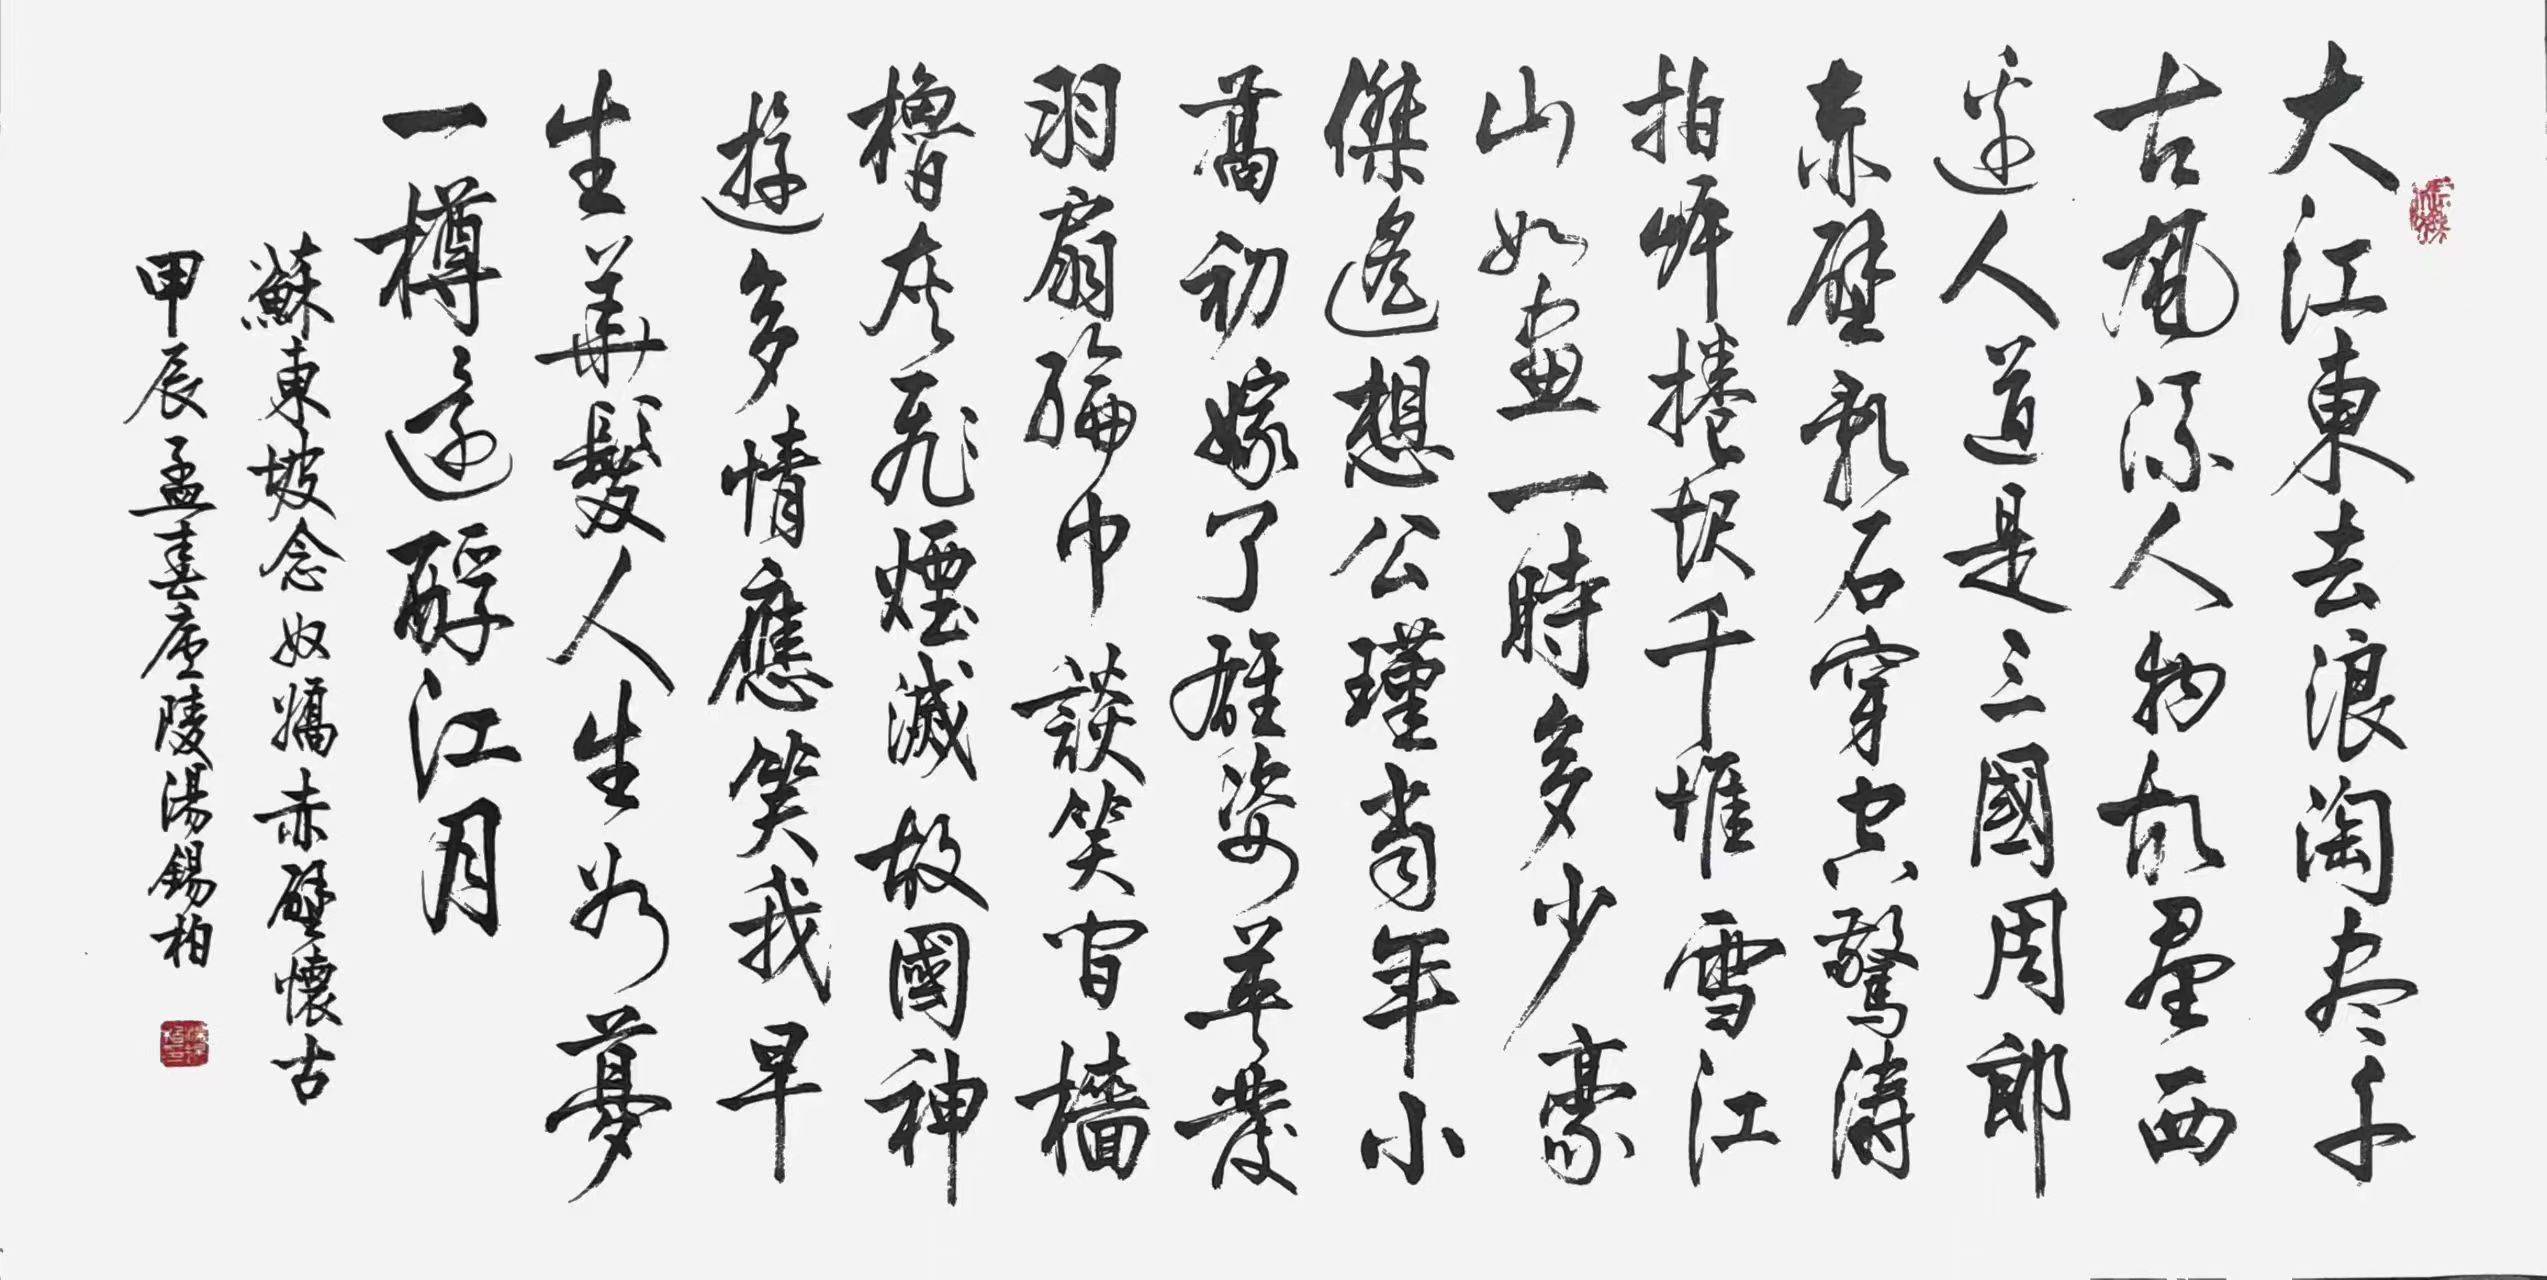 大江東去浪淘尽千
古風流人物故壘西
邊人道是三國周郎
赤壁亂石穿空驚濤
拍岸捲起千堆雪江
山如畫一時多少豪
傑遙想公瑾當年小
喬初嫁了雄姿英發
羽扇綸巾談笑間檣
櫓灰飛煙滅故國神
遊多情應笑我早
生華髮人生如夢
一樽還酹江月
蘇東坡念奴嬌赤壁懷古
甲辰孟春廬陵湯錫柏